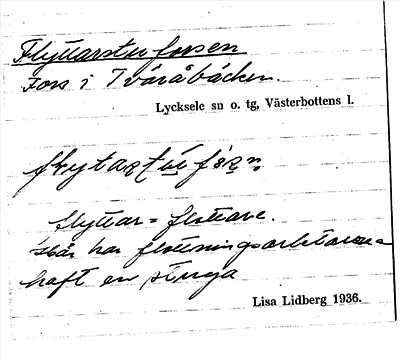 Flyttarstuforsen
Fors i Tväråbäcken.
Lycksele sn o. tg, Västerbottens l.
flyttar = flottare.
här har flottningsarbetarna
haft en stuga
Lisa Lidberg 1936.